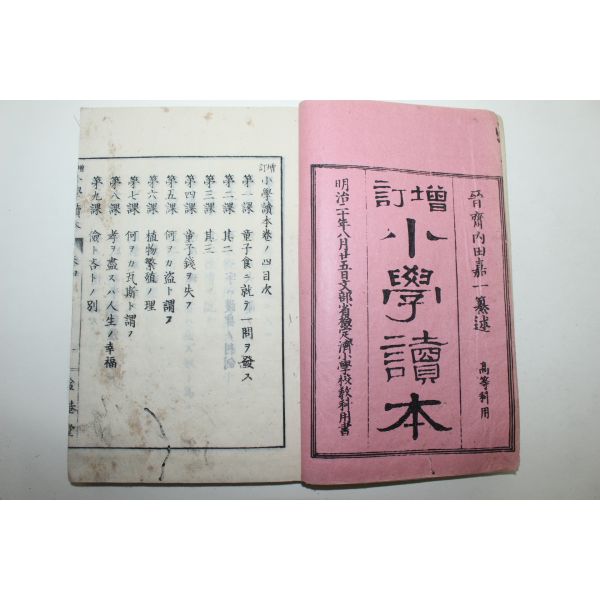 晉齋內田嘉一纂述
高等科用
增訂
小學讀本
明治二十年八月廿五日文部省檢定濟小學校教科用書
增訂小學讀本卷ノ四目次
第一課 童子食ニ就テ一問ヲ發ス
第二課 其二
第三課 其三
第四課 童子錢ヲ失フ
第五課 何ヲカ盜ト謂フ
第六課 植物繁殖ノ理
第七課 何ヲカ瓦斯ト謂フ
第八課 孝ヲ盡スハ人生ノ幸福
第九課 儉ト吝トノ別